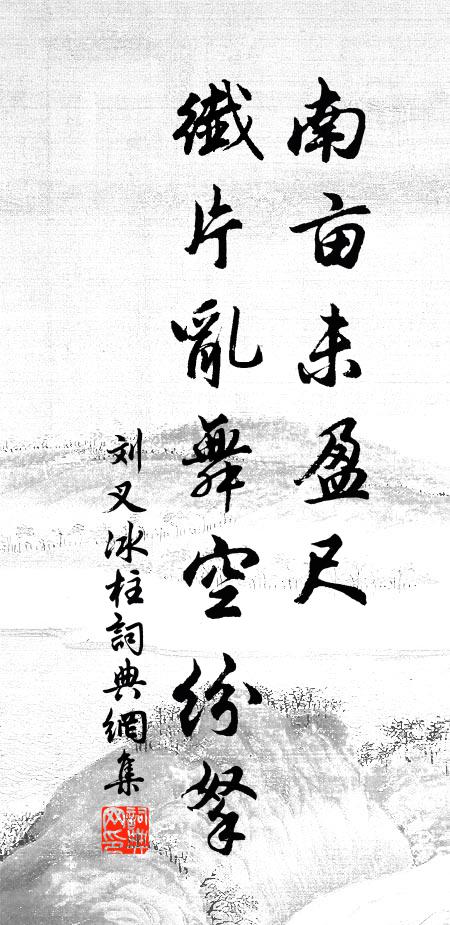 南亩未盈尺
纎片亂舞空纷拏
刘叉冰柱詞典網集